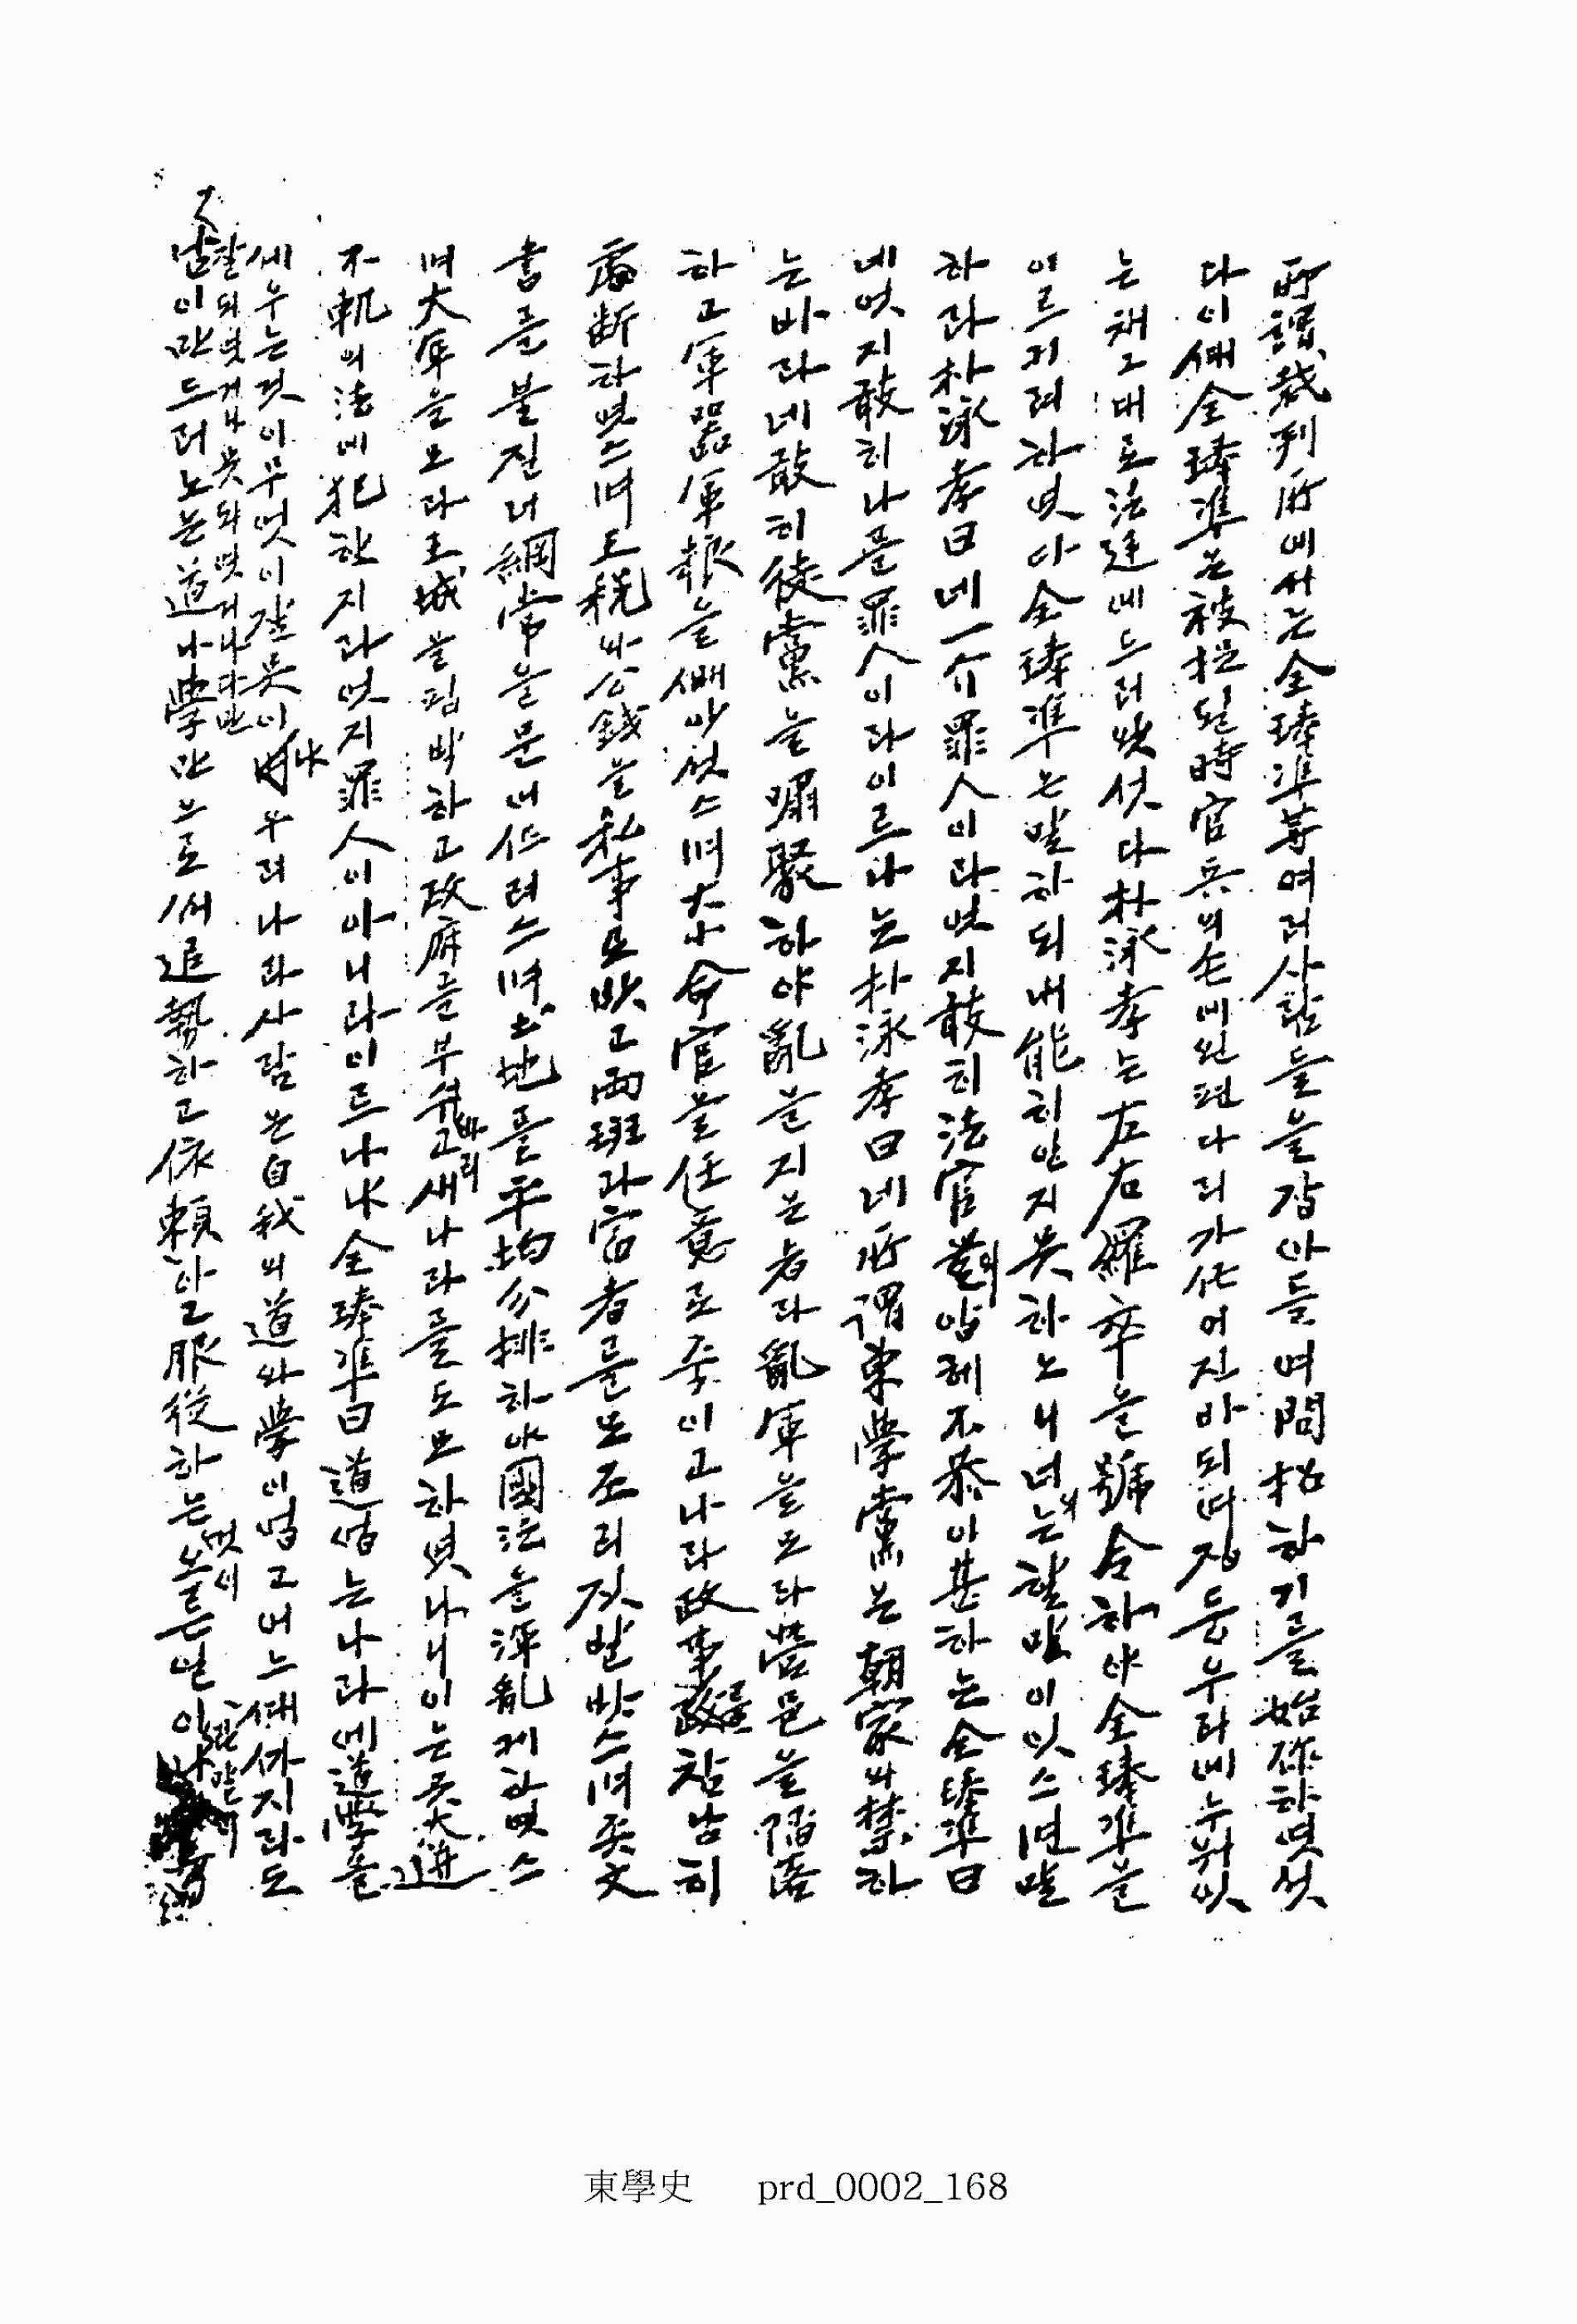 所謂裁判所에서는全琫準等여러사람들을잡아들여問招하기를始作하엿섯
다이때全琫準은被捉될時官兵의손에왼편다리가부어진바되여장듕우리에누워잇
는채그대로法廷에드러왓섯다朴泳孝는左右羅卒을號令하야全琫準을
이르키려하엿다全琫準은말하되내能히안지못하노니너의는할말이잇스면말
하라朴泳孝曰네一介罪人이라엇지敢히法官의압헤不恭이甚하는全琫準曰
네엇지敢히나를罪人이라이르나는朴泳孝曰네所謂東學黨은朝家의禁하
는바라네敢히徒黨을嘯聚하야亂을지은者라亂軍을모라營邑을陷落
하고軍器軍粮을빼아섯스며大小命官을任意로죽이고나라政事를참남히
處斷하엿스며王稅와公錢을私事로밧고兩班과富者를모조리짓발밧스며宗文
書를불질너綱常을문어트려스며土地를平均分排하야國法을渾亂케하엿스
며大軍을모라王城을핍박하고政府를부쉬바리고새나라를도모하엿나니이는곳大逆
不軌의法에犯한지라엇지罪人이아니라이르나냐全琫準曰道업는나라에道學을
세우는것이무엇이잘못이냐우리나라사람은自我의道와學이업고어느때까지라도
잘되엿거나못되엿거나다만
남이만드러노은道나學만으로써追勢하고依賴하고服從하는것이올흔일이냐